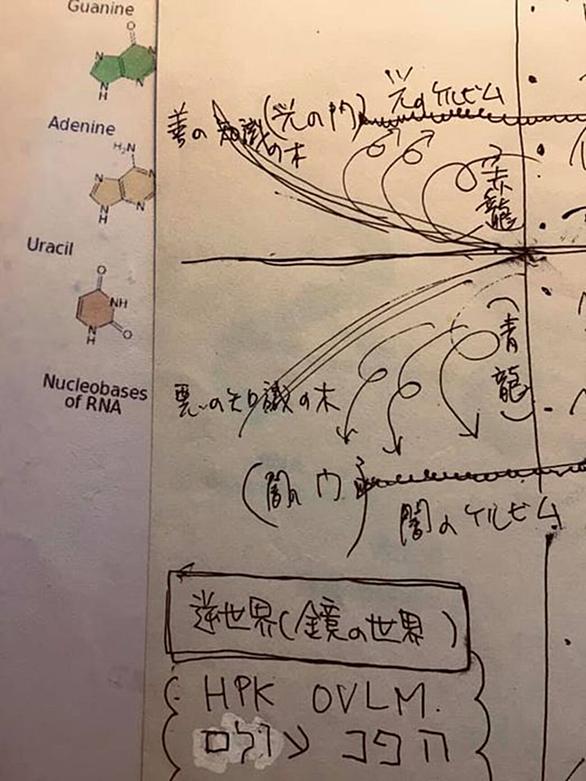 Guanine
O
N
N
H
Adenine
H₂N
N
N
N
H
Uracil
O
NH
N
H
O
Nucleobases
of RNA
善の知識の木
(光の門)
光のケルビム
(赤龍
(青龍)
悪の知識の木
(闇の門)
闇のケルビム
逆世界(鏡の世界)
HPK OVLM.
הפכ עולם